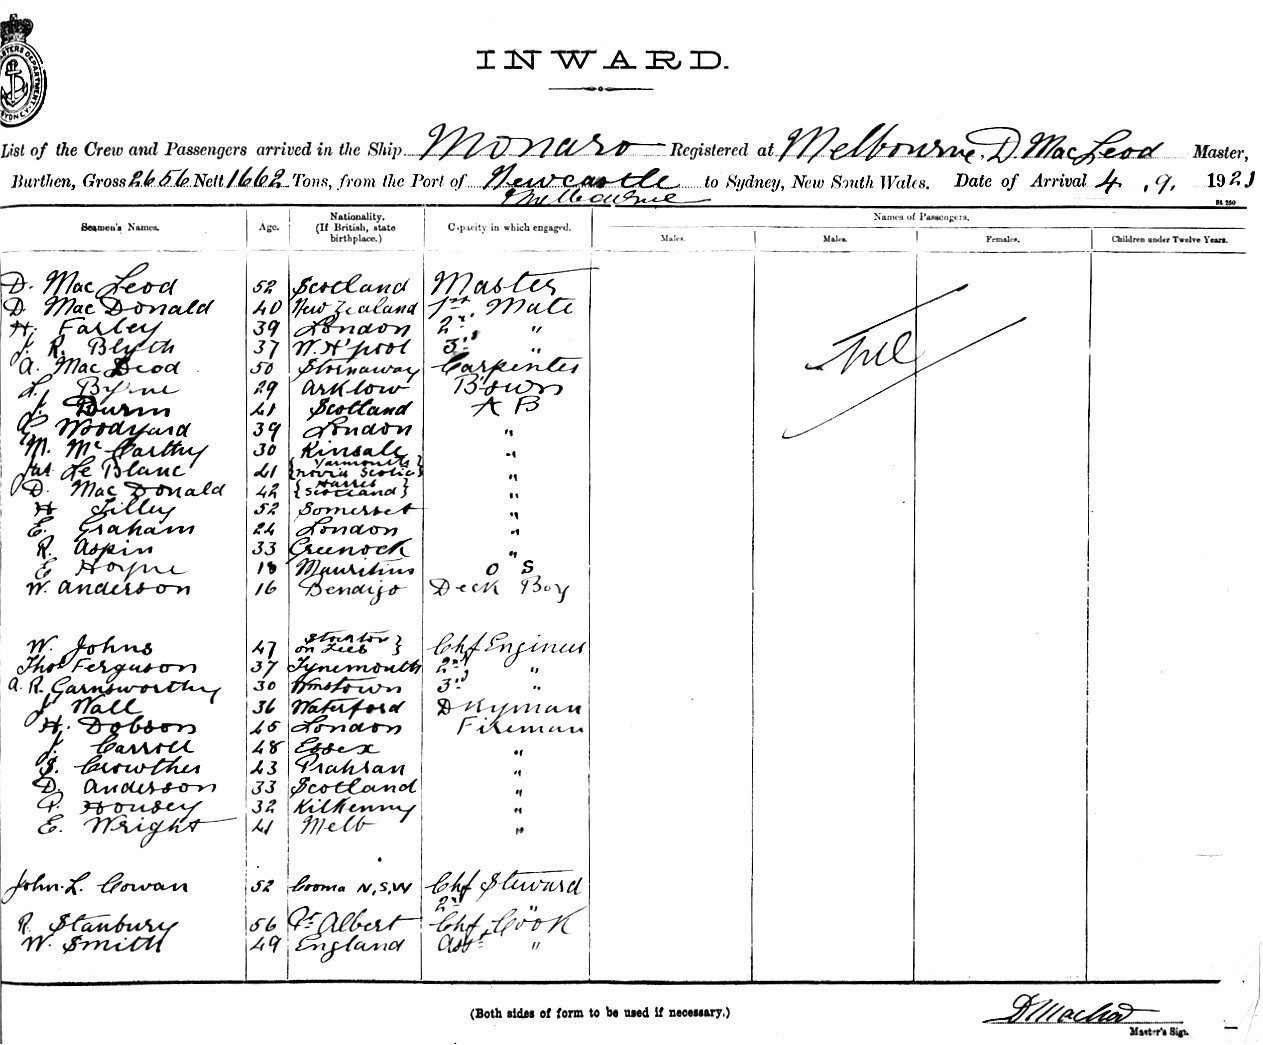 INWARD.
List of the Crew and Passengers arrived in the Ship Monaro Registered at Melbourne, D. MacLeod Master,
Burthen, Gross 2656 Nett 1662 Tons, from the Port of Newcastle to Sydney, New South Wales. Date of Arrival 4 . 9. 1921
Melbourne
Seamen's Names. Age. Nationality. (If British, state birthplace.) Capacity in which engaged. Names of Passengers.
Males. Males. Females. Children under Twelve Years.
D. MacLeod 52 Scotland Master
D MacDonald 40 New Zealand 1st Mate
H. Farley 39 London 2nd "
J. R. Blyth 37 W. H'pool 3rd "
A. MacLeod 50 Stornaway Carpenter
L. Byrne 29 Arklow B'swn
J. 41 Scotland A B
Woodyard 39 London "
M. McCarthy 30 Kinsale "
Jas Le Blanc 41 {Yarmouth Nova Scotia} "
D. MacDonald 42 {Harris Scotland} "
H Lilley 52 Somerset "
E. Graham 24 London "
R. Aspin 33 Greenock "
E 18 Mauritius O S
W. Anderson 16 Bendigo Deck Boy
W. Johns 47 Stockton on Tees } Chf Engineer
Thos Ferguson 37 Tynemouth 2nd "
A. R. Garnsworthy 30 Wmstown 3rd "
J Wall 36 Waterford Dkyman
H. Dobson 45 London Fireman
J. Carroll 48 Essex "
S. Crowther 43 Prahran "
D. Anderson 33 Scotland "
P. Housey 32 Kilkenny "
E. Wright 41 Melb "
John L. Cowan 52 Cooma N.S.W Chf Steward
2nd "
R. Stanbury 56 Pt Albert Chf Cook
W. Smith 49 England Asst "
Nil
(Both sides of form to be used if necessary.)
D MacLeod
Master's Sign.